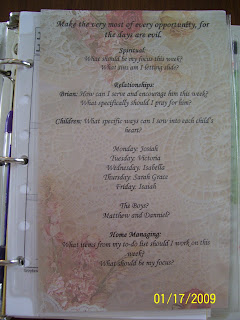 Make the very most of every opportunity, for
the days are evil.
Spiritual:
What should be my focus this week?
What sins am I letting slide?
Relationships:
Brian: How can I serve and encourage him this week?
What specifically should I pray for him?
Children: What specific ways can I sow into each child's
heart?
Monday: Josiah
Tuesday: Victoria
Wednesday: Isabella
Thursday: Sarah Grace
Friday: Isaiah
The Boys?
Matthew and Danniel?
Home Managing:
What items from my to-do list should I work on this
week?
What should be my focus?
01/17/2009